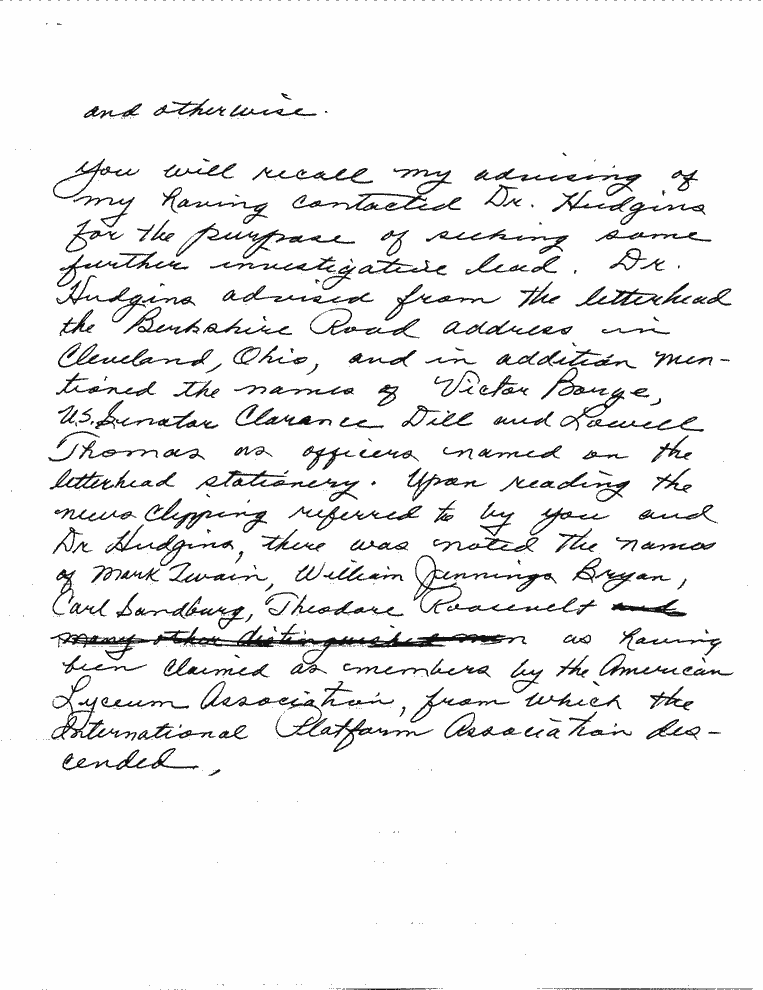 and otherwise.
You will recall my advising of
my having contacted Dr. Hudgins
for the purpose of seeking some
further investigative lead. Dr.
Hudgins advised from the letterhead
the Berkshire Road address in
Cleveland, Ohio, and in addition men-
tioned the names of Victor Borge,
U.S. Senator Clarance Dill and Lowell
Thomas as officers named on the
letterhead stationery. Upon reading the
news clipping referred to by you and
Dr Hudgins, there was noted the names
of Mark Twain, William Jennings Bryan,
Carl Sandburg, Theodore Roosevelt and
many other distinguished men as having
been claimed as members by the American
Lyceum Association, from which the
International Platform Association des-
cended,